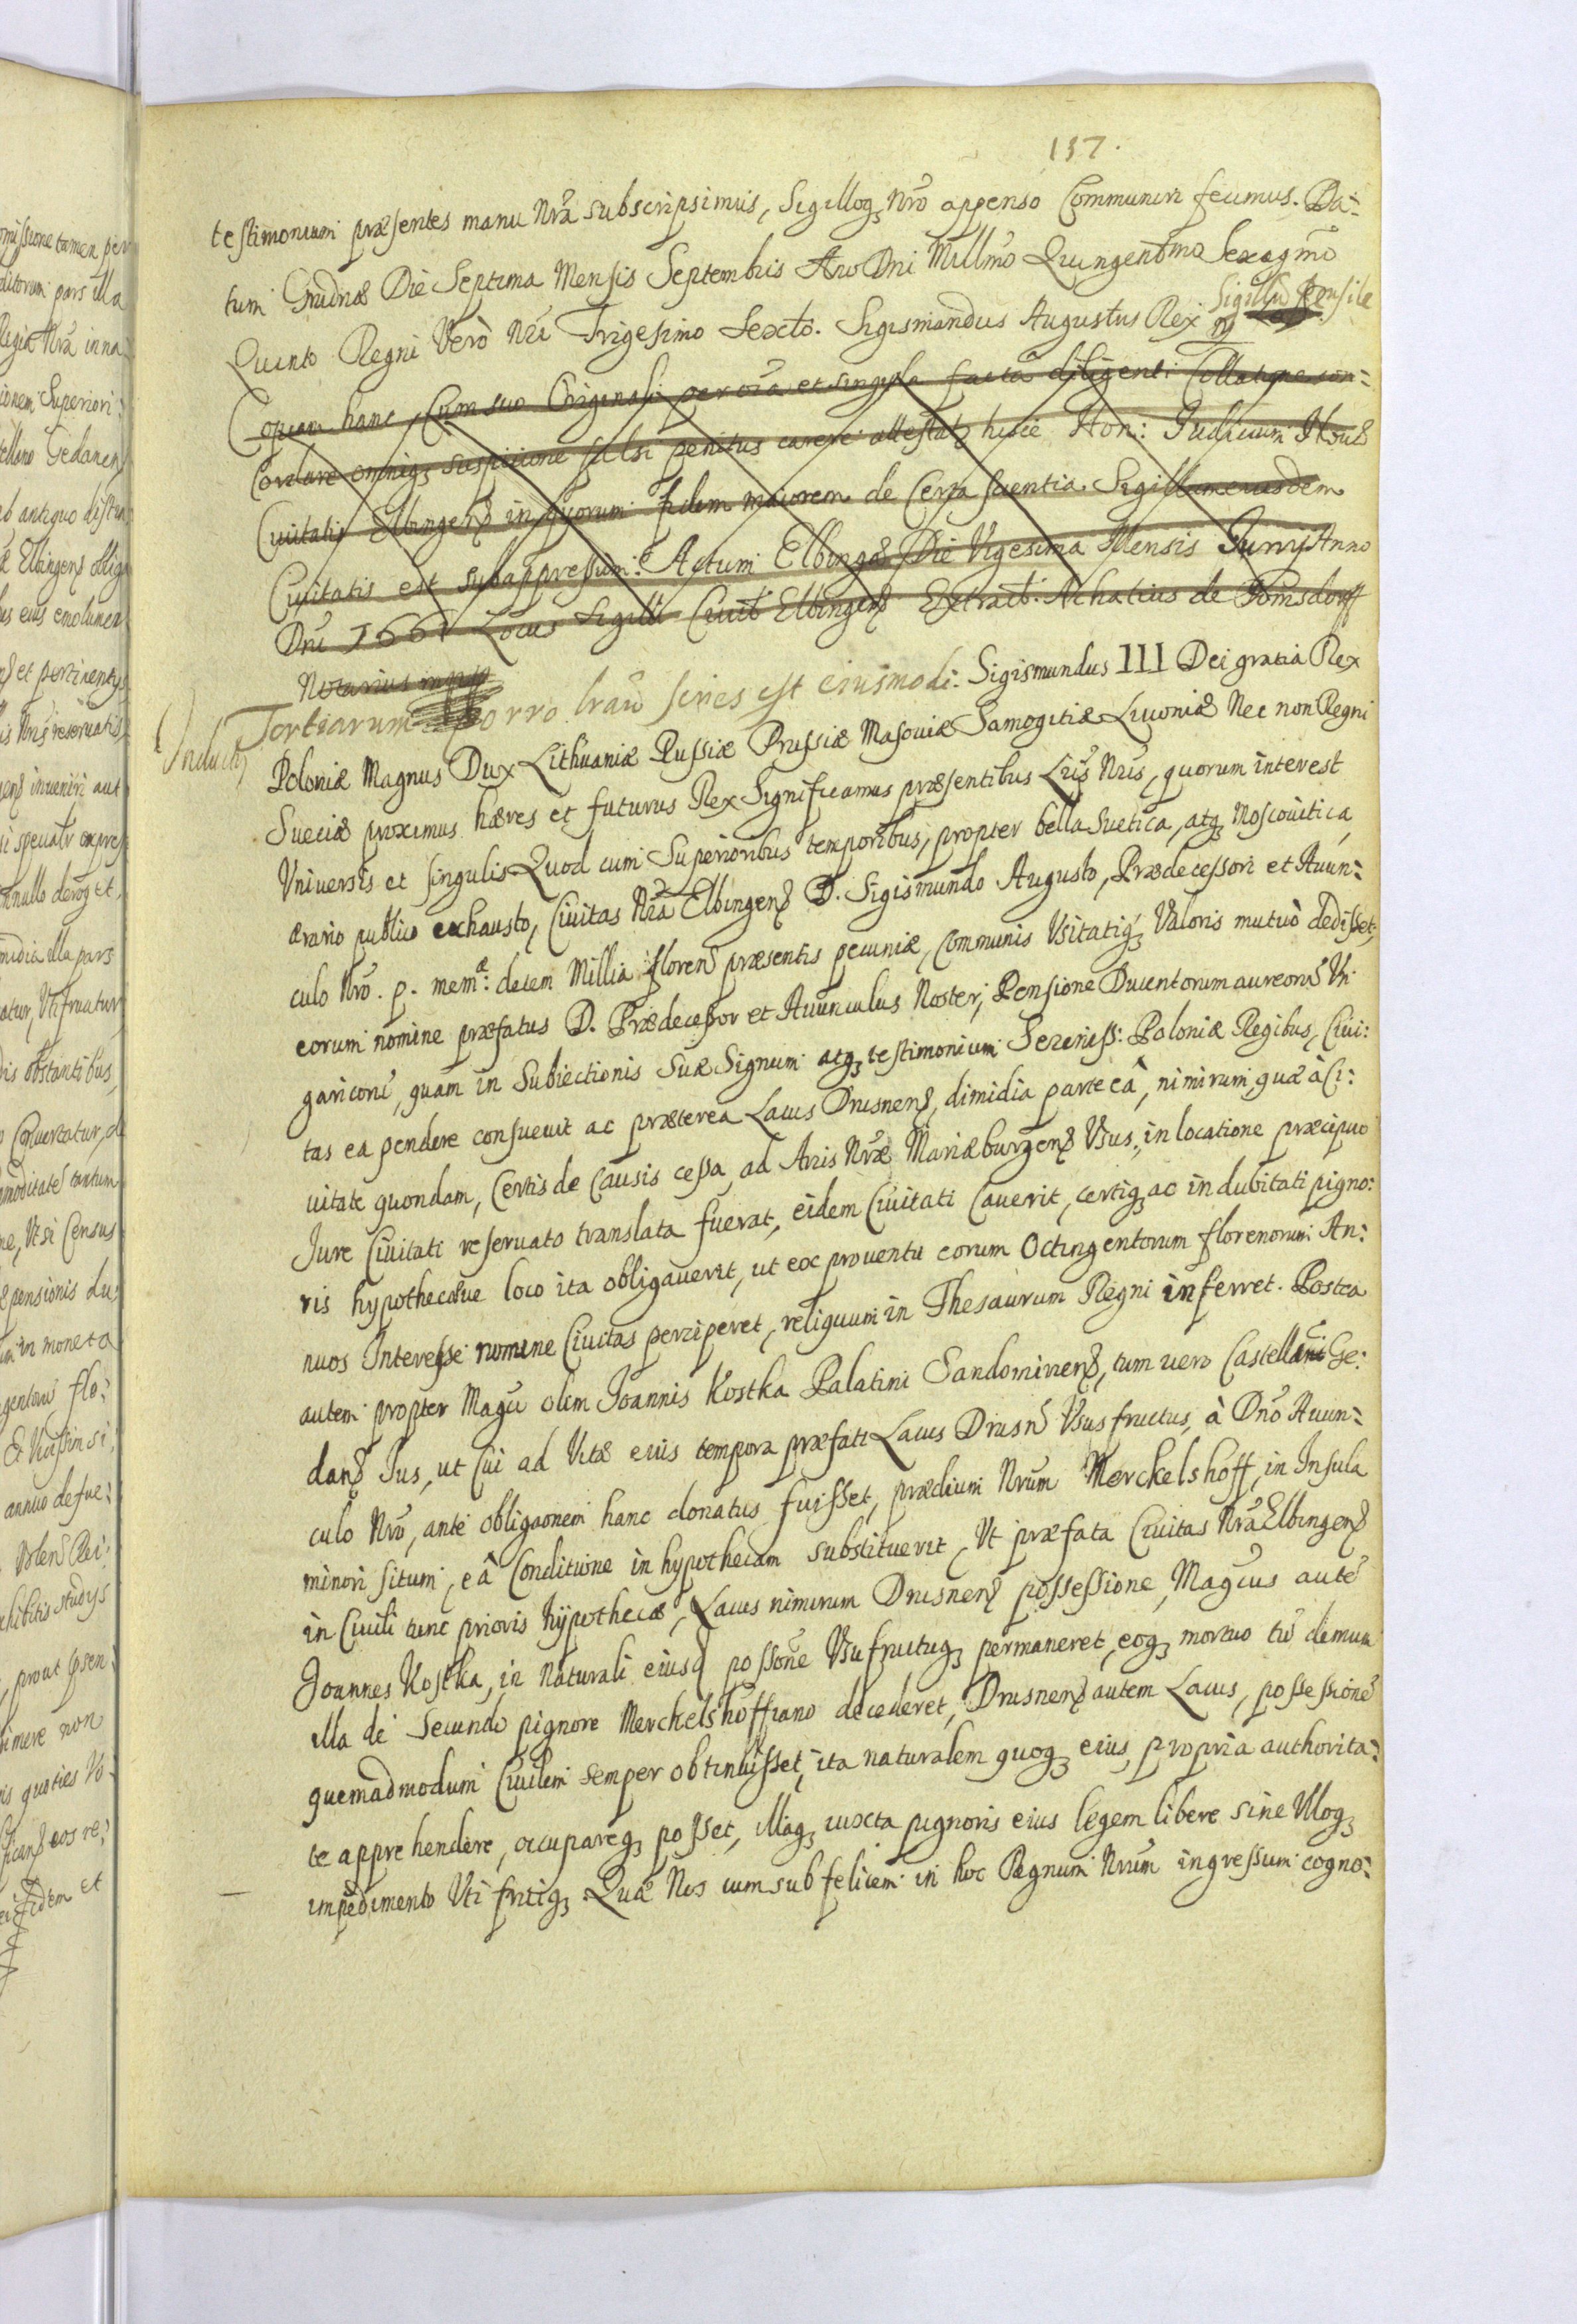 137.
testimonium præsentes manu Nrã subscripsimus, Sigilloq₃ Nrõ appenso Communiri fecimus. Da:
tum Grudnæ Die Septima Mensis Septembris Ano Dni Millmõ Quingentmo Sexagmõ
Quinto Regni Verò Nri Trigesimo Sexto. Sigismundus Augustus Rex Sigillũ pensile
Copiam hanc, Cum suo Originali per oĩa et singula facta diligenti Collatione con:
cordare omniq₃ suspicione falsi penitus carere attestatʒ hisce Hon: Judicium
Civitatis Elbingens in quorum fidem maiorem de Certa scientia. Sigillum eiusdem
Civitatis est subappressum. Actum Elbingæ Die Vigesima Mensis Junij Anno
Dni 1661 Locus Sigilli Civit Elbingens Extradt. Achatius de Pomsdorff
Notarius mpp
Tertiarum porro lrarũ series est eiusmodi. Sigismundus III Dei gratia Rex
Poloniæ Magnus Dux Lithuaniæ Russiæ Prussiæ Masoviæ Samogitiæ Livoniæ Nec non Regni
Sueciæ proximus hæres et futurus Rex Significamus præsentibus Lris Nris, quorum interest
Vniversis et singulis Quod cum Superioribus temporibus, propter bella Suetica, atq₃ Moscovitica
ærario publico exhausto, Civitas Nrã Elbingens D. Sigismundo Augusto, Prædecessori et Avun:
culo Nrõ. p. mem: decem Millia floren præsentis pecuniæ, communis Vsitatiq₃ Valoris mutuò dedisset,
eorum nomine præfatus D. Prædecessor et Avunculus Noster, Pensione Ducentorum aureorũ Vn
garicorũ, quam in Subiectionis Suæ Signum atq₃ testimonium Sereniss: Poloniæ Regibus, Civi:
tas ea pendere consuevit ac præterea Lacus Drusnens, dimidia parte eâ, nimirum, quæ à Ci:
vitate quondam, Certis de Causis cessa, ad Arcis Nræ Mariæburgens Vsus, in locatione præcipuo
Jure Civitati reservato translata fuerat, eidem Civitati Caverit, certiq₃ ac indubitati pigno:
ris hypothecæve loco ita obligaverit, ut ex proventu eorum Octingentorum florenorum An:
nuos Interesse nomine Civitas perciperet, reliquum in Thesaurum Regni inferret. Postea
autem propter Magci olim Joannis Kostka Palatini Sandomiriens, tum vero Castellani Ge:
dans Jus, ut cui ad Vitæ eius tempora præfati Lacus Drusn Vsusfructus, à Dnõ Avun:
culo Nrõ, ante obligaonem hanc donatus fuisset, prædium Nrum Merckelshoff, in Insula
minori situm, eâ Conditione in hypothecam substituerit, Vt præfata Civitas Nrã Elbingens
in Civili tunc prioris hypothecæ, Lacus nimirum Drusnens possessione, Magcus autẽ
Joannes Kostka, in naturali eiusd possone Vsufructuq₃ permaneret, eoq₃ mortuo tũ demum
illa de Secundo pignore Merckelshoffiano decederet, Drusnens autem Lacus, possessionẽ
quemadmodum Civilem semper obtinuisset, ita naturalem quoq₃ eius, propria authorita:
te apprehendere, occupareq₃ posset, illaq₃ iuxta pignoris eius legem libere sine Vlloq₃
impedimento Vti fruiq₃. Quæ Nos cum sub felicem in hoc Regnum Nrum ingressum cogno: